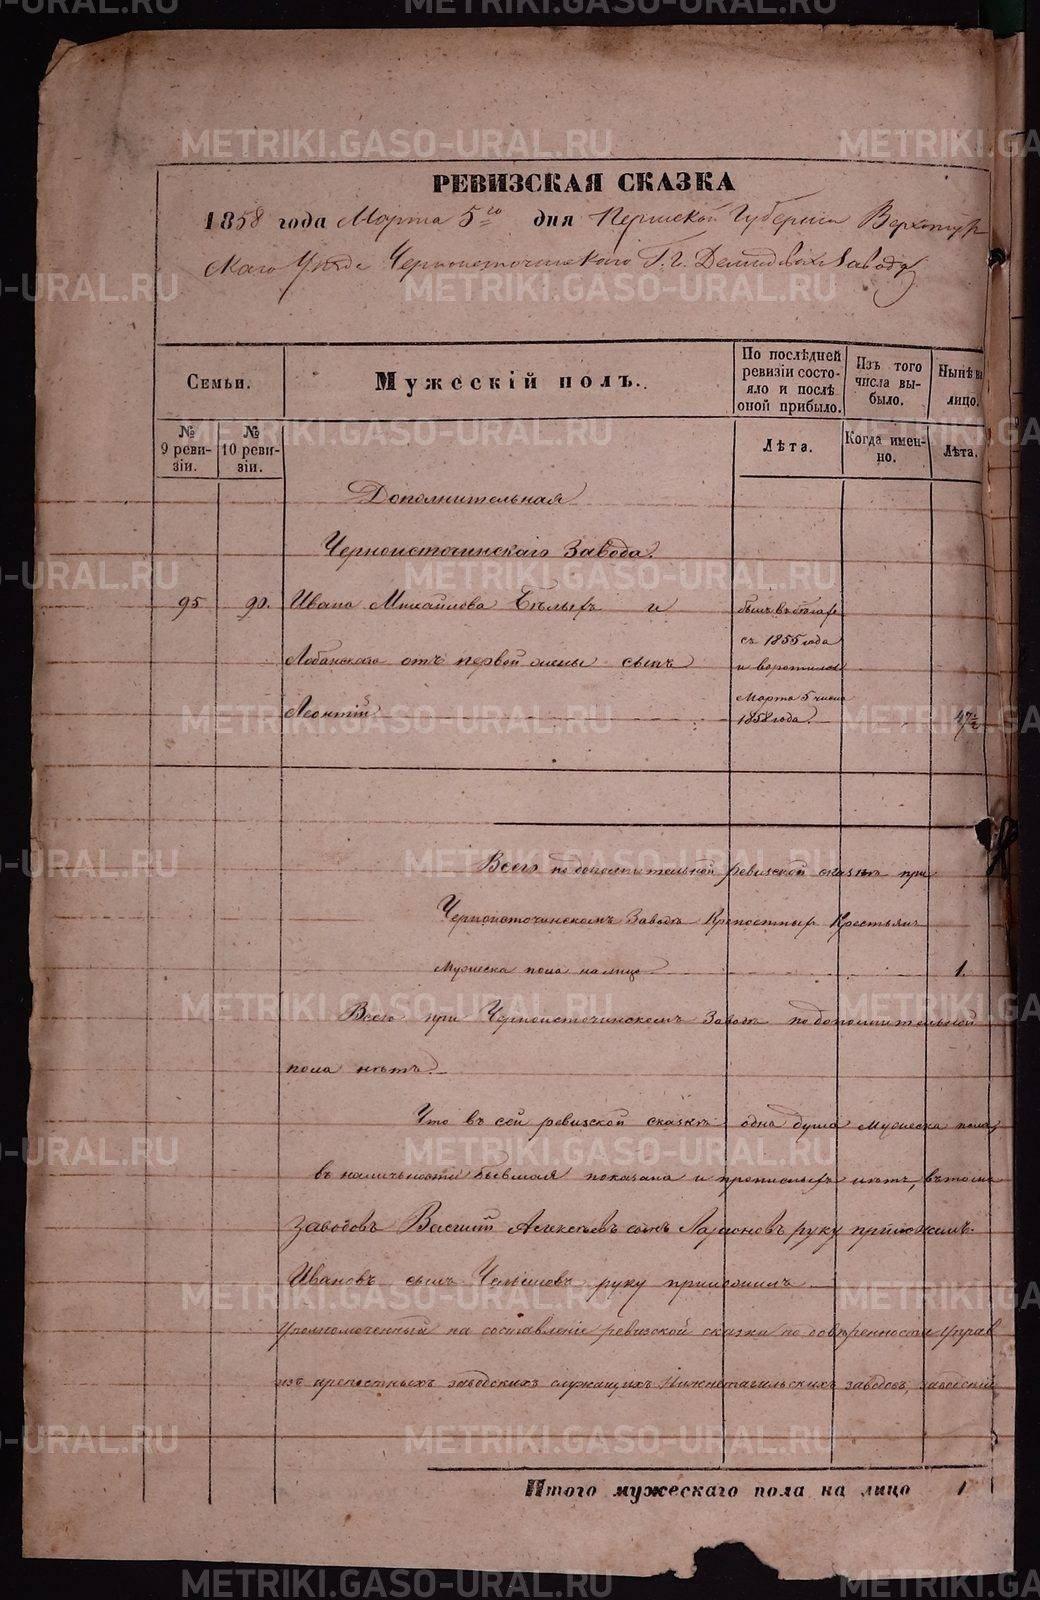 РЕВИЗСКАЯ СКАЗКА
1858 года Марта 5го дня Пермской Губернiи Верхотур
скаго Уѣзда Черноисточинскаго Г.г. Демидовыхъ Завода
Семьи.
Мужескiй полъ.
По послѣдней ревизiи состояло и послѣ оной прибыло.
Изъ того числа выбыло.
Нынѣ на лицо.
№ 9 ревизiи.
№ 10 ревизiи.
Лѣта.
Когда именно.
Лѣта.
Дополнительная
Черноисточинскаго Завода.
95 90. Ивана Михайлова Бѣлыхъ и
Лобанскаго отъ первой жены сынъ
Леонтiй
былъ въ бѣгахъ
съ 1855 года
и воротился
Марта 5 числа
1858 года.
47½
Всего по дополнительной ревизской сказкѣ при
Черноисточинскомъ Заводѣ Крепостныхъ Крестьянъ
Мужеска пола на лицо 1.
Всего при Черноисточинскомъ Заводѣ по дополнительной
пола нѣтъ.
Что въ сей ревизской сказкѣ одна душа Мужеска пола,
въ наличности бывшая показана и прописныхъ нѣтъ, въ томъ
Заводовъ Василiй Алексѣевъ сынъ руку приложилъ.
Ивановъ сынъ руку приложилъ
Уполномоченный на составленiе ревизской сказки по довѣренности Управ
изъ крепостныхъ заводскихъ служащихъ Нижнетагильскихъ заводовъ, заводскiй
Итого мужескаго пола на лицо 1
METRIKI.GASO-URAL.RU